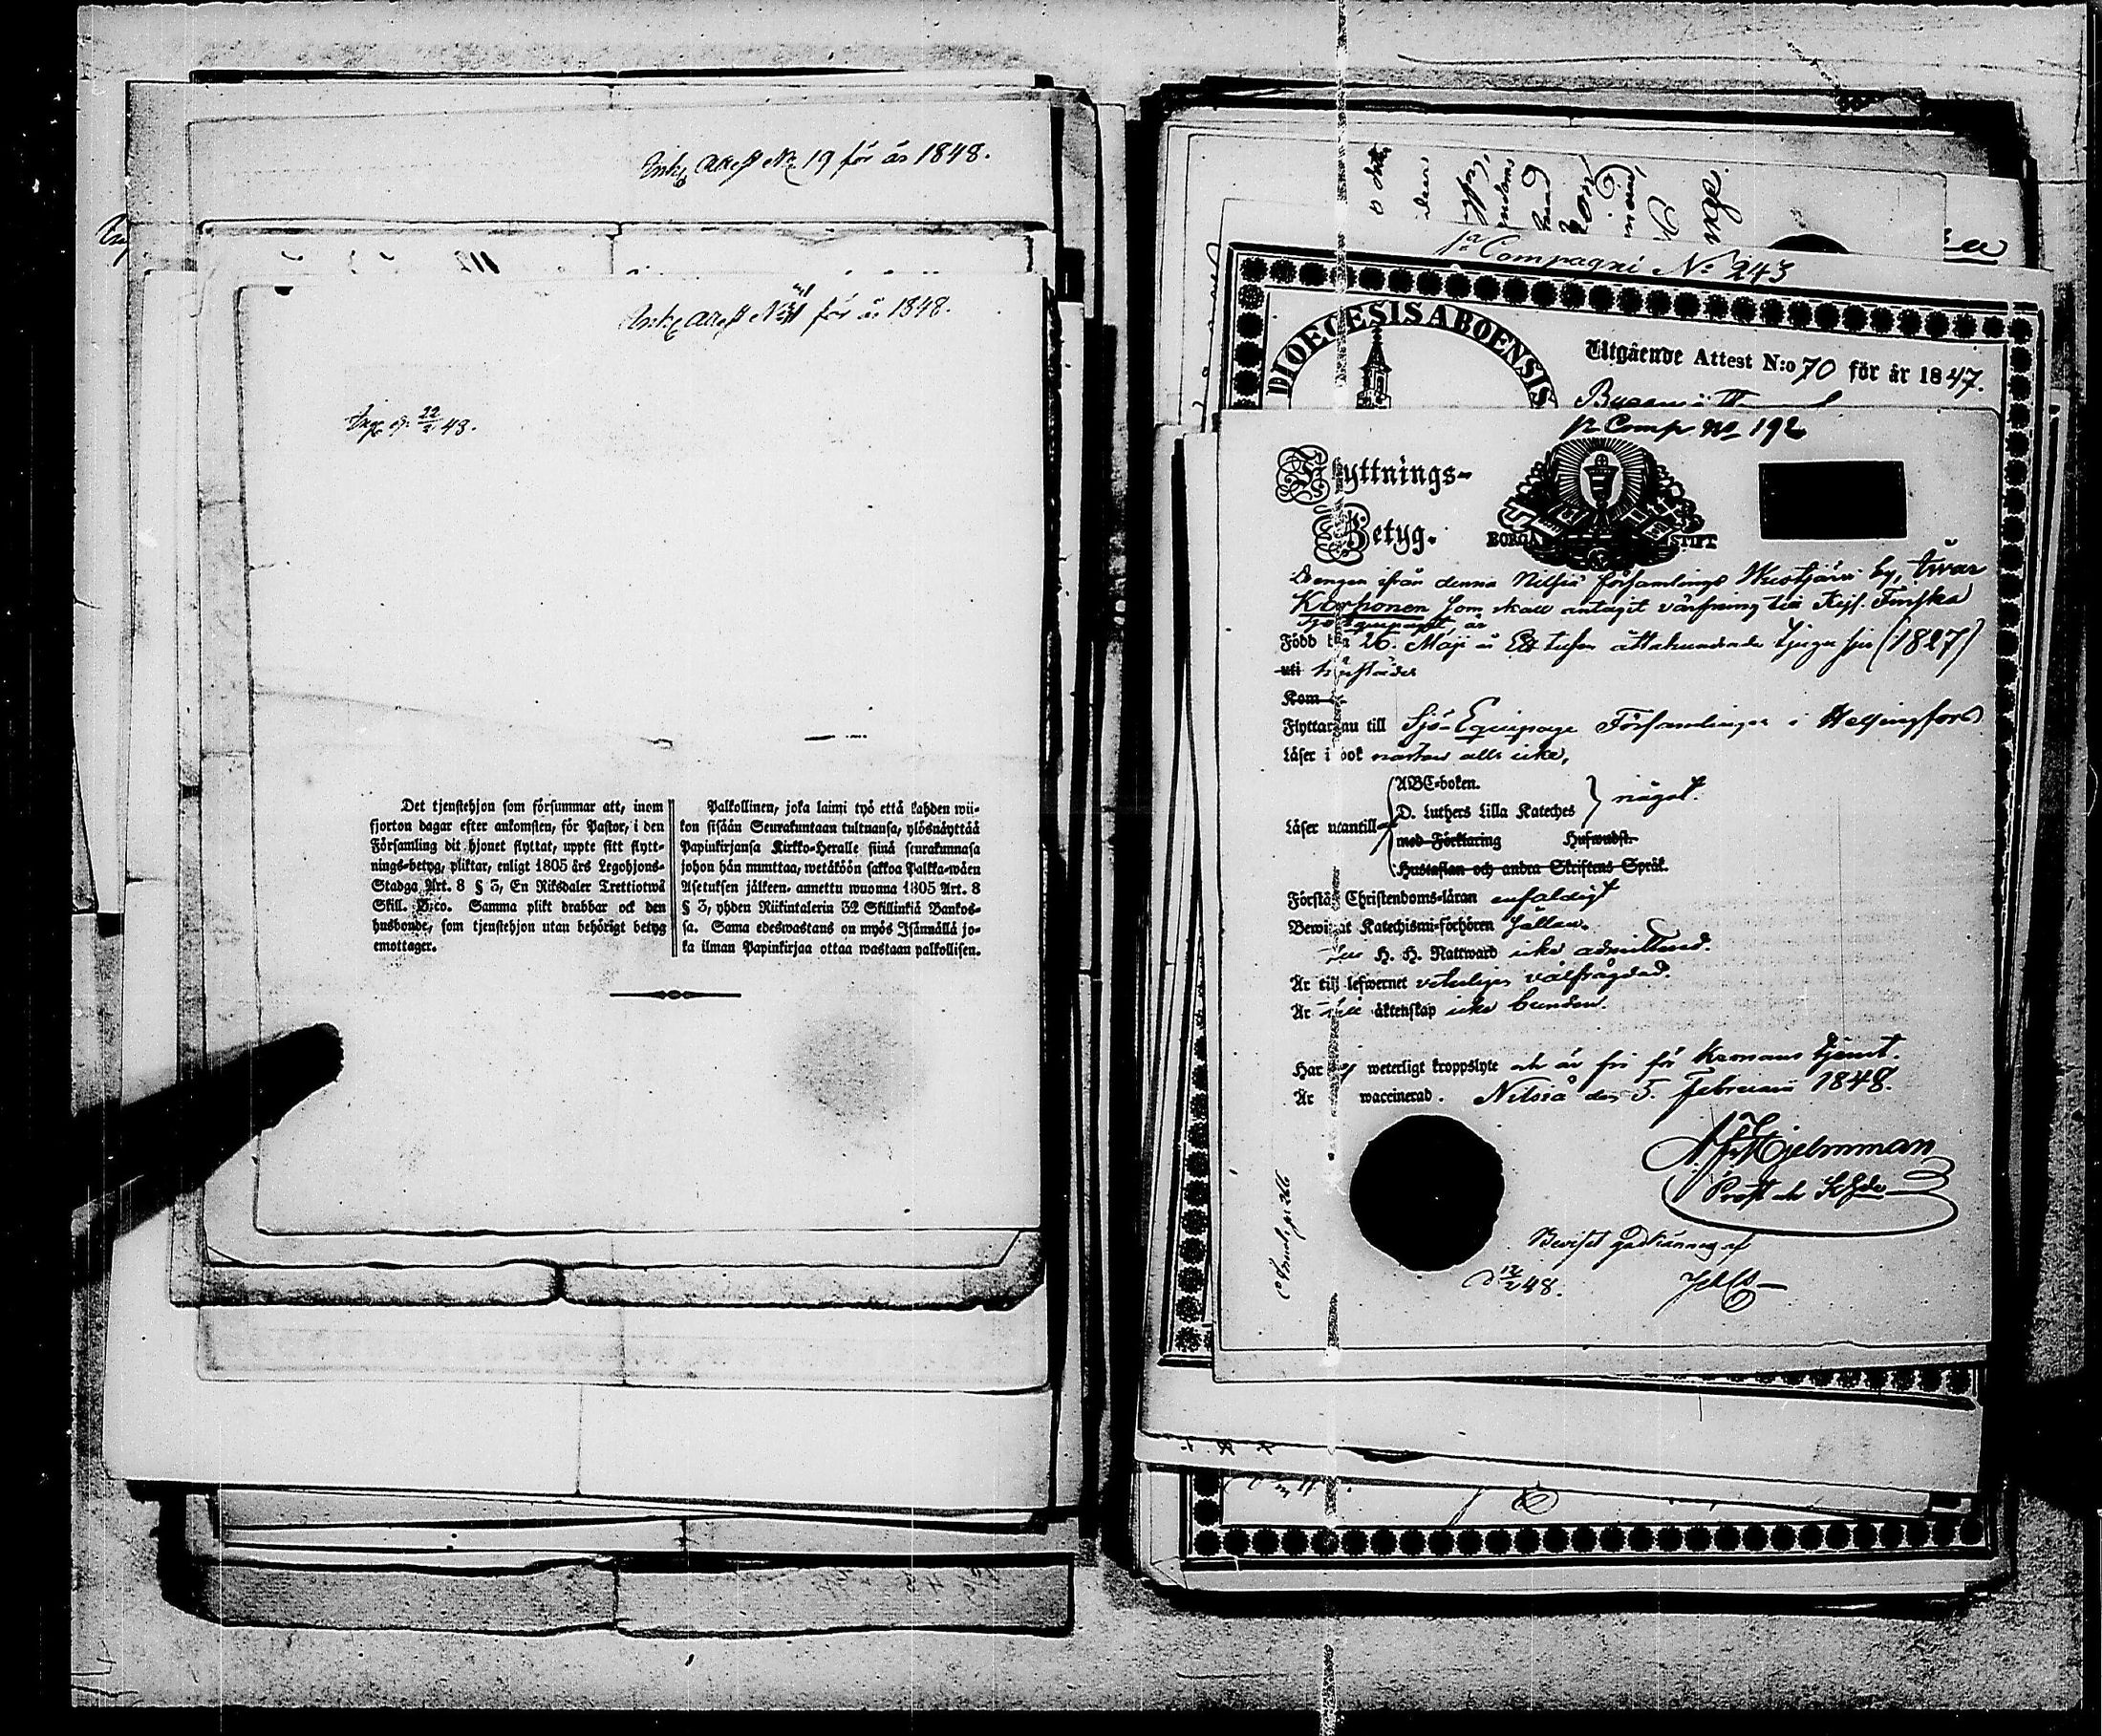 Attest No 19 för år 1848.
Attest No för år 1848.
22/2 48.
Det tjenstehjon som försummar att, inom
fjorton dagar efter ankomsten, för Pastor, i den
Församling dit hjonet flyttat, uppte sitt flytt-
nings-betyg, pliktar, enligt 1805 års Legohjons-
Stadga Art. 8 § 3, En Riksdaler Trettiotwå
Skill. B:co. Samma plikt drabbar ock den
husbonde, som tjenstehjon utan behörigt betyg
emottager.
Palkollinen, joka laimi työ että kahden wii-
kon sisään Seurakuntaan tultuansa, ylösnäyttää
Papinkirjansa Kirkko-Heralle siinä seurakunnasa
johon hän muuttaa, wetäköön sakkoa Palkka-wäen
Asetuksen jälkeen annettu wuonna 1805 Art. 8
§ 3, yhden Riikintalerin 32 Skillinkiä Bankos-
sa. Sama edeswastaus on myös Isännällä jo-
ka ilman Papinkirjaa ottaa wastaan palkollisen.
1a Compagni No 243
DIOECESIS ABOENSIS
Utgående Attest N:o 70 för år 1847.
12 Comp. No 192
Flyttnings-
Betyg.
BORGÅ STIFT
Drengen ifrån denna Nilsiä församlings by, Ivar
Korhonen som skall antagit värfning till Kejs. Finska
Sjö Equipaget är
Född den 26. Maji år Ett tusen åttahundrade tjugu sju (1827)
uti
Kom
Flyttar nu till Sjö-Equipage Församlingen i Helsingfors
Läser i bok nästan alls icke,
Läser utantill
ABC-boken.
D. Luthers Lilla Kateches något.
med Förklaring Hufwudst.
Hustaflan och andra Skriftens Språk.
Förstår Christendoms-läran enfaldigt
Bewistat Katechismi-förhören sällan.
Till H. H. Nattward icke admitterad.
Är till lefwernet veterligen välfrägdad.
Är till äktenskap icke bunden.
Har ej weterligt kroppslyte och är fri för Kronans tjenst.
Är waccinerad. Nilsiä den 5. Februarii 1848.
Hjelmman
Prost och Khde
Beviset godkännes af
d 12/2 48.